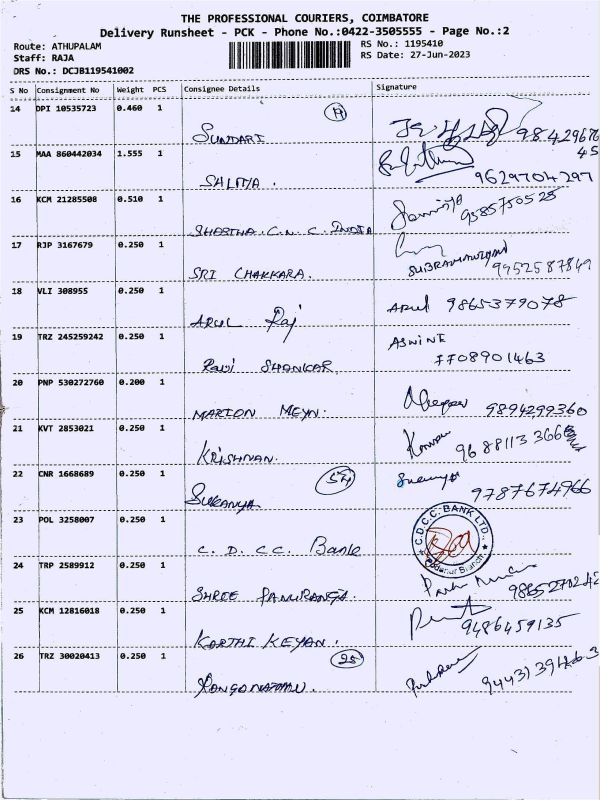 THE PROFESSIONAL COURIERS, COIMBATORE
Delivery Runsheet - PCK - Phone No.:0422-3505555 - Page No.:2
Route: ATHUPALAM
RS No.: 1195410
Staff: RAJA
RS Date: 27-Jun-2023
DRS No.: DCJB119541002
S No Consignment No Weight PCS Consignee Details Signature
14 DPI 10535723 0.460 1
SUNDARI
15 MAA 860442034 1.555 1
9629704297
16 KCM 21285508 0.510 1
SHASTHA. C. N. C. INDIA 9385750525
17 RJP 3167679 0.250 1
SRI CHAKKARA. SUBRAMANIYAM 9952587849
18 VLI 308955 0.250 1
ARUL Raj Arul 9865379078
19 TRZ 245259242 0.250 1
Ravi SHANKAR. ASWINI 7708901463
20 PNP 530272760 0.200 1
MARION MEYN. 9894299360
21 KVT 2853021 0.250 1
KRISHNAN.
22 CNR 1668689 0.250 1 54
SUKANYA. 9787674966
23 POL 3258007 0.250 1
C. D. C C. Bank C.D.C.C. BANK LTD.,
24 TRP 2589912 0.250 1
SHREE PANURANGA. 9865270242
25 KCM 12816018 0.250 1
KARTHI KEYAN. 9486459135
26 TRZ 30020413 0.250 1 25
Ranganathan.